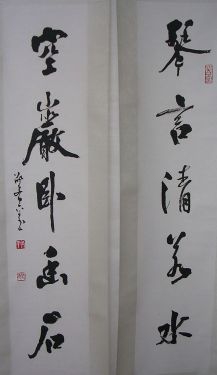 琴言清若水
空巖卧幽石